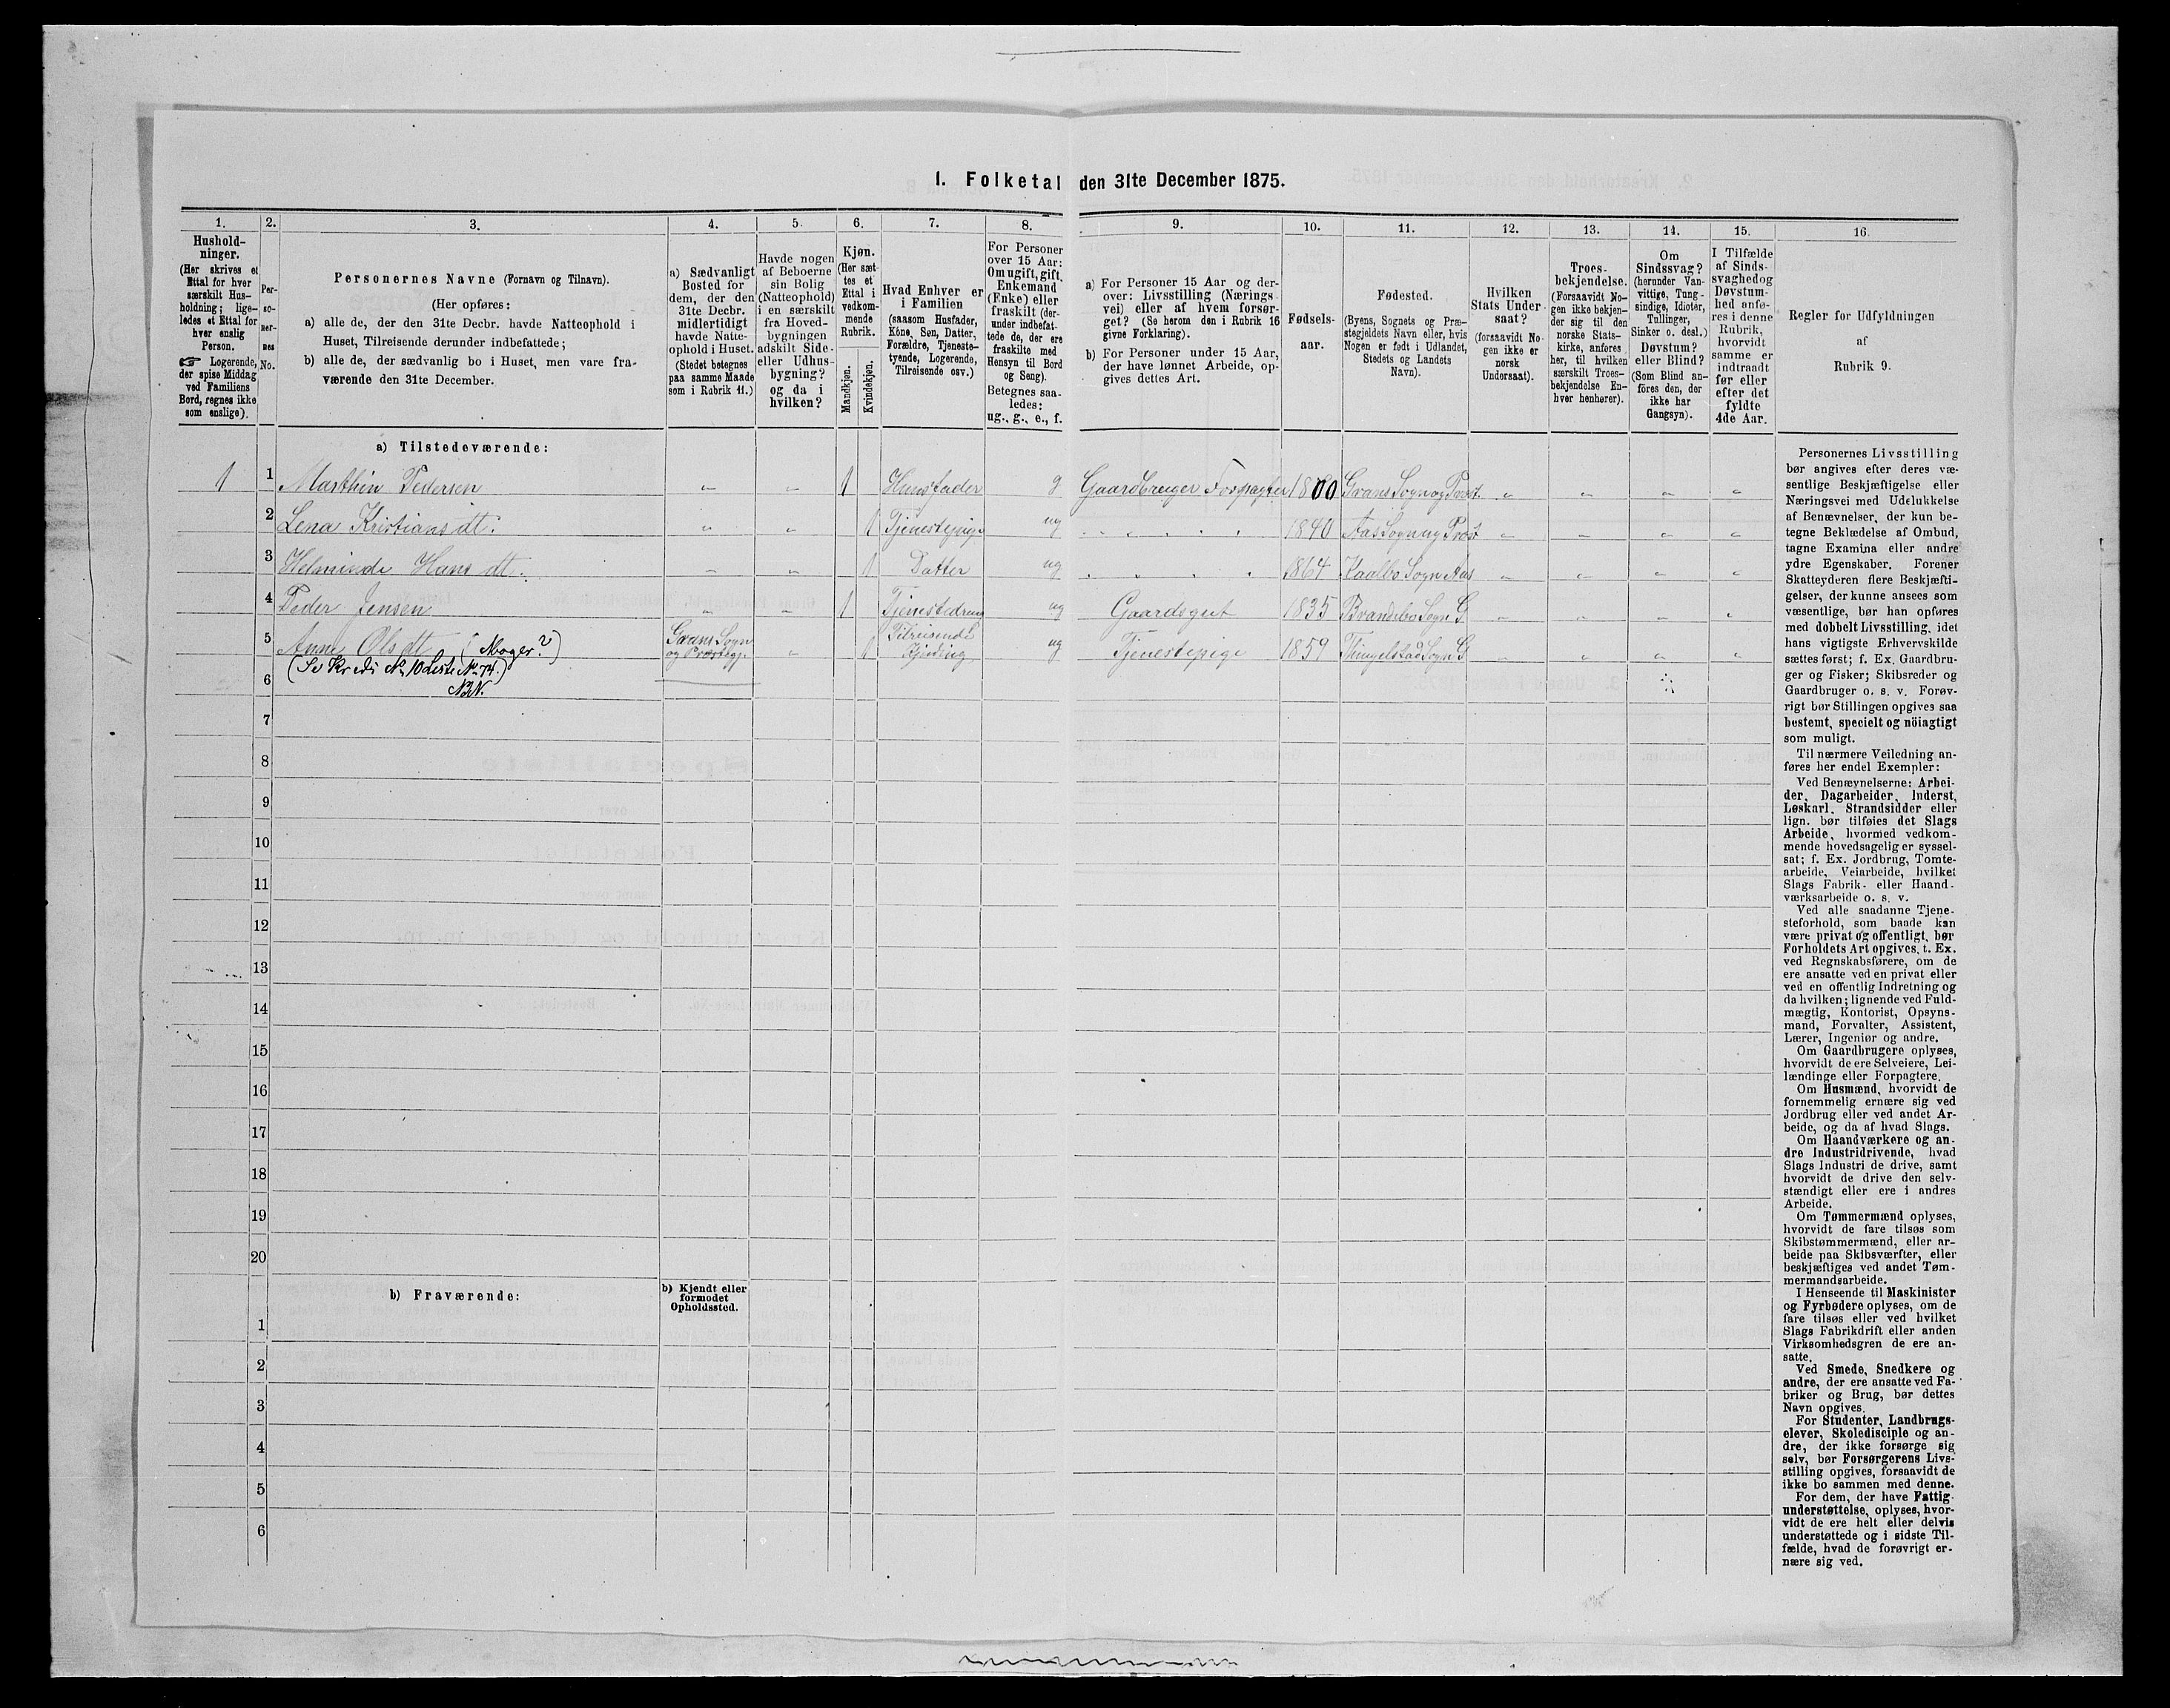 I. Folketal den 31te December 1875.
1.
Hushold-
ninger.
(Her skrives et
Ettal for hver
særskilt Hus-
holdning; lige-
ledes et Ettal for
hver enslig
Person.
☞ Logerende,
der spise Middag
ved Familiens
Bord, regnes ikke
som enslige).
2.
Per-
so-
ner-
nes
No.
3.
Personernes Navne (Fornavn og Tilnavn).
(Her opføres:
a) alle de, der den 31te Decbr. havde Natteophold i
Huset, Tilreisende derunder indbefattede;
b) alle de, der sædvanlig bo i Huset, men vare fra-
værende den 31te December.
4.
a) Sædvanligt
Bosted for
dem, der den
31te Decbr.
midlertidigt
havde Natte-
ophold i Huset.
(Stedet betegnes
paa samme Maade
som i Rubrik 11.)
5.
Havde nogen
af Beboerne
sin Bolig
(Natteophold)
i en særskilt
fra Hoved-
bygningen
adskilt Side-
eller Udhus-
bygning?
og da i
hvilken?
6.
Kjøn.
(Her sæt-
tes et
Ettal i
vedkom-
mende
Rubrik.
Mandkjøn.
Kvindekjøn.
7.
Hvad Enhver er
i Familien
(saasom Husfader,
Kone, Søn, Datter,
Forældre, Tjeneste-
tyende, Logerende,
Tilreisende osv.)
8.
For Personer
over 15 Aar:
Om ugift, gift,
Enkemand
(Enke) eller
fraskilt (der-
under indbefat-
tede de, der ere
fraskilte med
Hensyn til Bord
og Seng).
Betegnes saa-
ledes:
ug., g., e., f.
9.
a) For Personer 15 Aar og der-
over: Livsstilling (Nærings-
vei) eller af hvem forsør-
get? (Se herom den i Rubrik 16
givne Forklaring).
b) For Personer under 15 Aar,
der have lønnet Arbeide, op-
gives dettes Art.
10.
Fødsels-
aar.
11.
Fødested.
(Byens, Sognets og Præ-
stegjeldets Navn eller, hvis
Nogen er født i Udlandet,
Stedets og Landets
Navn).
12.
Hvilken
Stats Under-
saat?
(forsaavidt No-
gen ikke er
norsk
Undersaat).
13.
Troes-
bekjendelse.
(Forsaavidt No-
gen ikke bekjen-
der sig til den
norske Stats-
kirke, anføres
her, til hvilken
særskilt Troes-
bekjendelse En-
hver henhører).
14.
Om
Sindssvag?
(herunder Van-
vittige, Tung-
sindige, Idioter,
Tullinger,
Sinker o. desl.)
Døvstum?
eller Blind?
(Som Blind an-
föres den, der
ikke har
Gangsyn).
15.
I Tilfælde
af Sinds-
svaghed og
Døvstum-
hed anfø-
res i denne
Rubrik,
hvorvidt
samme er
indtraadt
før eller
efter det
fyldte
4de Aar.
16.
Regler for Udfyldningen
af
Rubrik 9.
a) Tilstedeværende:
1 1 Marthin Pedersen „ „ 1 Husfader g Gaardbruger Forpagter 1800 Grans Sogn og Præst. „ „ „ „
2 Lena Kristians dt. „ „ 1 Tjenestepige ug „ „ „ „ „ 1840 Aas Sogn og Præst „ „ „ „
3 Helminde Hans dt. „ „ 1 Datter ug „ „ „ „ 1864 Kaalbo Sogn Aas „ „ „ „
4 Peder Jensen „ „ 1 Tjenestedreng ug Gaardsgut 1835 Brandebo Sogn G „ „ „ „
5 Anne Ols dt (Moger?) Grans Sogn og Præstegj. „ 1 Tilreisende ug Tjenestepige 1859 Thingelstad Sogn G „ „ „ „
(Se Kreds No 10 Liste No 74.)
NBN.
6
7
8
9
10
11
12
13
14
15
16
17
18
19
20
b) Fraværende:
b) Kjendt eller
formodet
Opholdssted.
1
2
3
4
5
6
Personernes Livsstilling
bør angives efter deres væ-
sentlige Beskjæftigelse eller
Næringsvei med Udelukkelse
af Benævnelser, der kun be-
tegne Beklædelse af Ombud,
tagne Examina eller andre
ydre Egenskaber. Forener
Skatteyderen flere Beskjæfti-
gelser, der kunne ansees som
væsentlige, bør han opføres
med dobbelt Livsstilling, idet
hans vigtigste Erhvervskilde
sættes først; f. Ex. Gaardbru-
ger og Fisker; Skibsreder og
Gaardbruger o. s. v. Forøv-
rigt bør Stillingen opgives saa
bestemt, specielt og nöiagtigt
som muligt.
Til nærmere Veiledning an-
føres her endel Exempler:
Ved Benævnelserne: Arbei-
der, Dagarbeider, Inderst,
Løskarl, Strandsidder eller
lign. bør tilføies det Slags
Arbeide, hvormed vedkom-
mende hovedsagelig er syssel-
sat; f. Ex. Jordbrug, Tomte-
arbeide, Veiarbeide, hvilket
Slags Fabrik- eller Haand-
værksarbeide o. s. v.
Ved alle saadanne Tjene-
steforhold, som baade kan
være privat og offentligt, bør
Forholdets Art opgives, t. Ex.
ved Regnskabsførere, om de
ere ansatte ved en privat eller
ved en offentlig Indretning og
da hvilken; lignende ved Fuld-
mægtig, Kontorist, Opsyns-
mand, Forvalter, Assistent,
Lærer, Ingeniør og andre.
Om Gaardbrugere oplyses,
hvorvidt de ere Selveiere, Lei-
lændinge eller Forpagtere.
Om Husmænd, hvorvidt de
fornemmelig ernære sig ved
Jordbrug eller ved andet Ar-
beide, og da af hvad Slags.
Om Haandværkere og an-
dre Industridrivende, hvad
Slags Industri de drive, samt
hvorvidt de drive den selv-
stændigt eller ere i andres
Arbeide.
Om Tømmermænd oplyses,
hvorvidt de fare tilsøs som
Skibstømmermænd, eller ar-
beide paa Skibsværfter, eller
beskjæftiges ved andet Tøm-
mermandsarbeide.
I Henseende til Maskinister
og Fyrbødere oplyses, om de
fare tilsøs eller ved hvilket
Slags Fabrikdrift eller anden
Virksomhedsgren de ere an-
satte.
Ved Smede, Snedkere og
andre, der ere ansatte ved Fa-
briker og Brug, bør dettes
Navn opgives.
For Studenter, Landbrugs-
elever, Skoledisciple og an-
dre, der ikke forsørge sig
selv, bør Forsørgerens Livs-
stilling opgives, forsaavidt de
ikke bo sammen med denne.
For dem, der have Fattig-
understøttelse, oplyses, hvor-
vidt de ere helt eller delvis
understøttede og i sidste Til-
fælde, hvad de forøvrigt er-
nære sig ved.